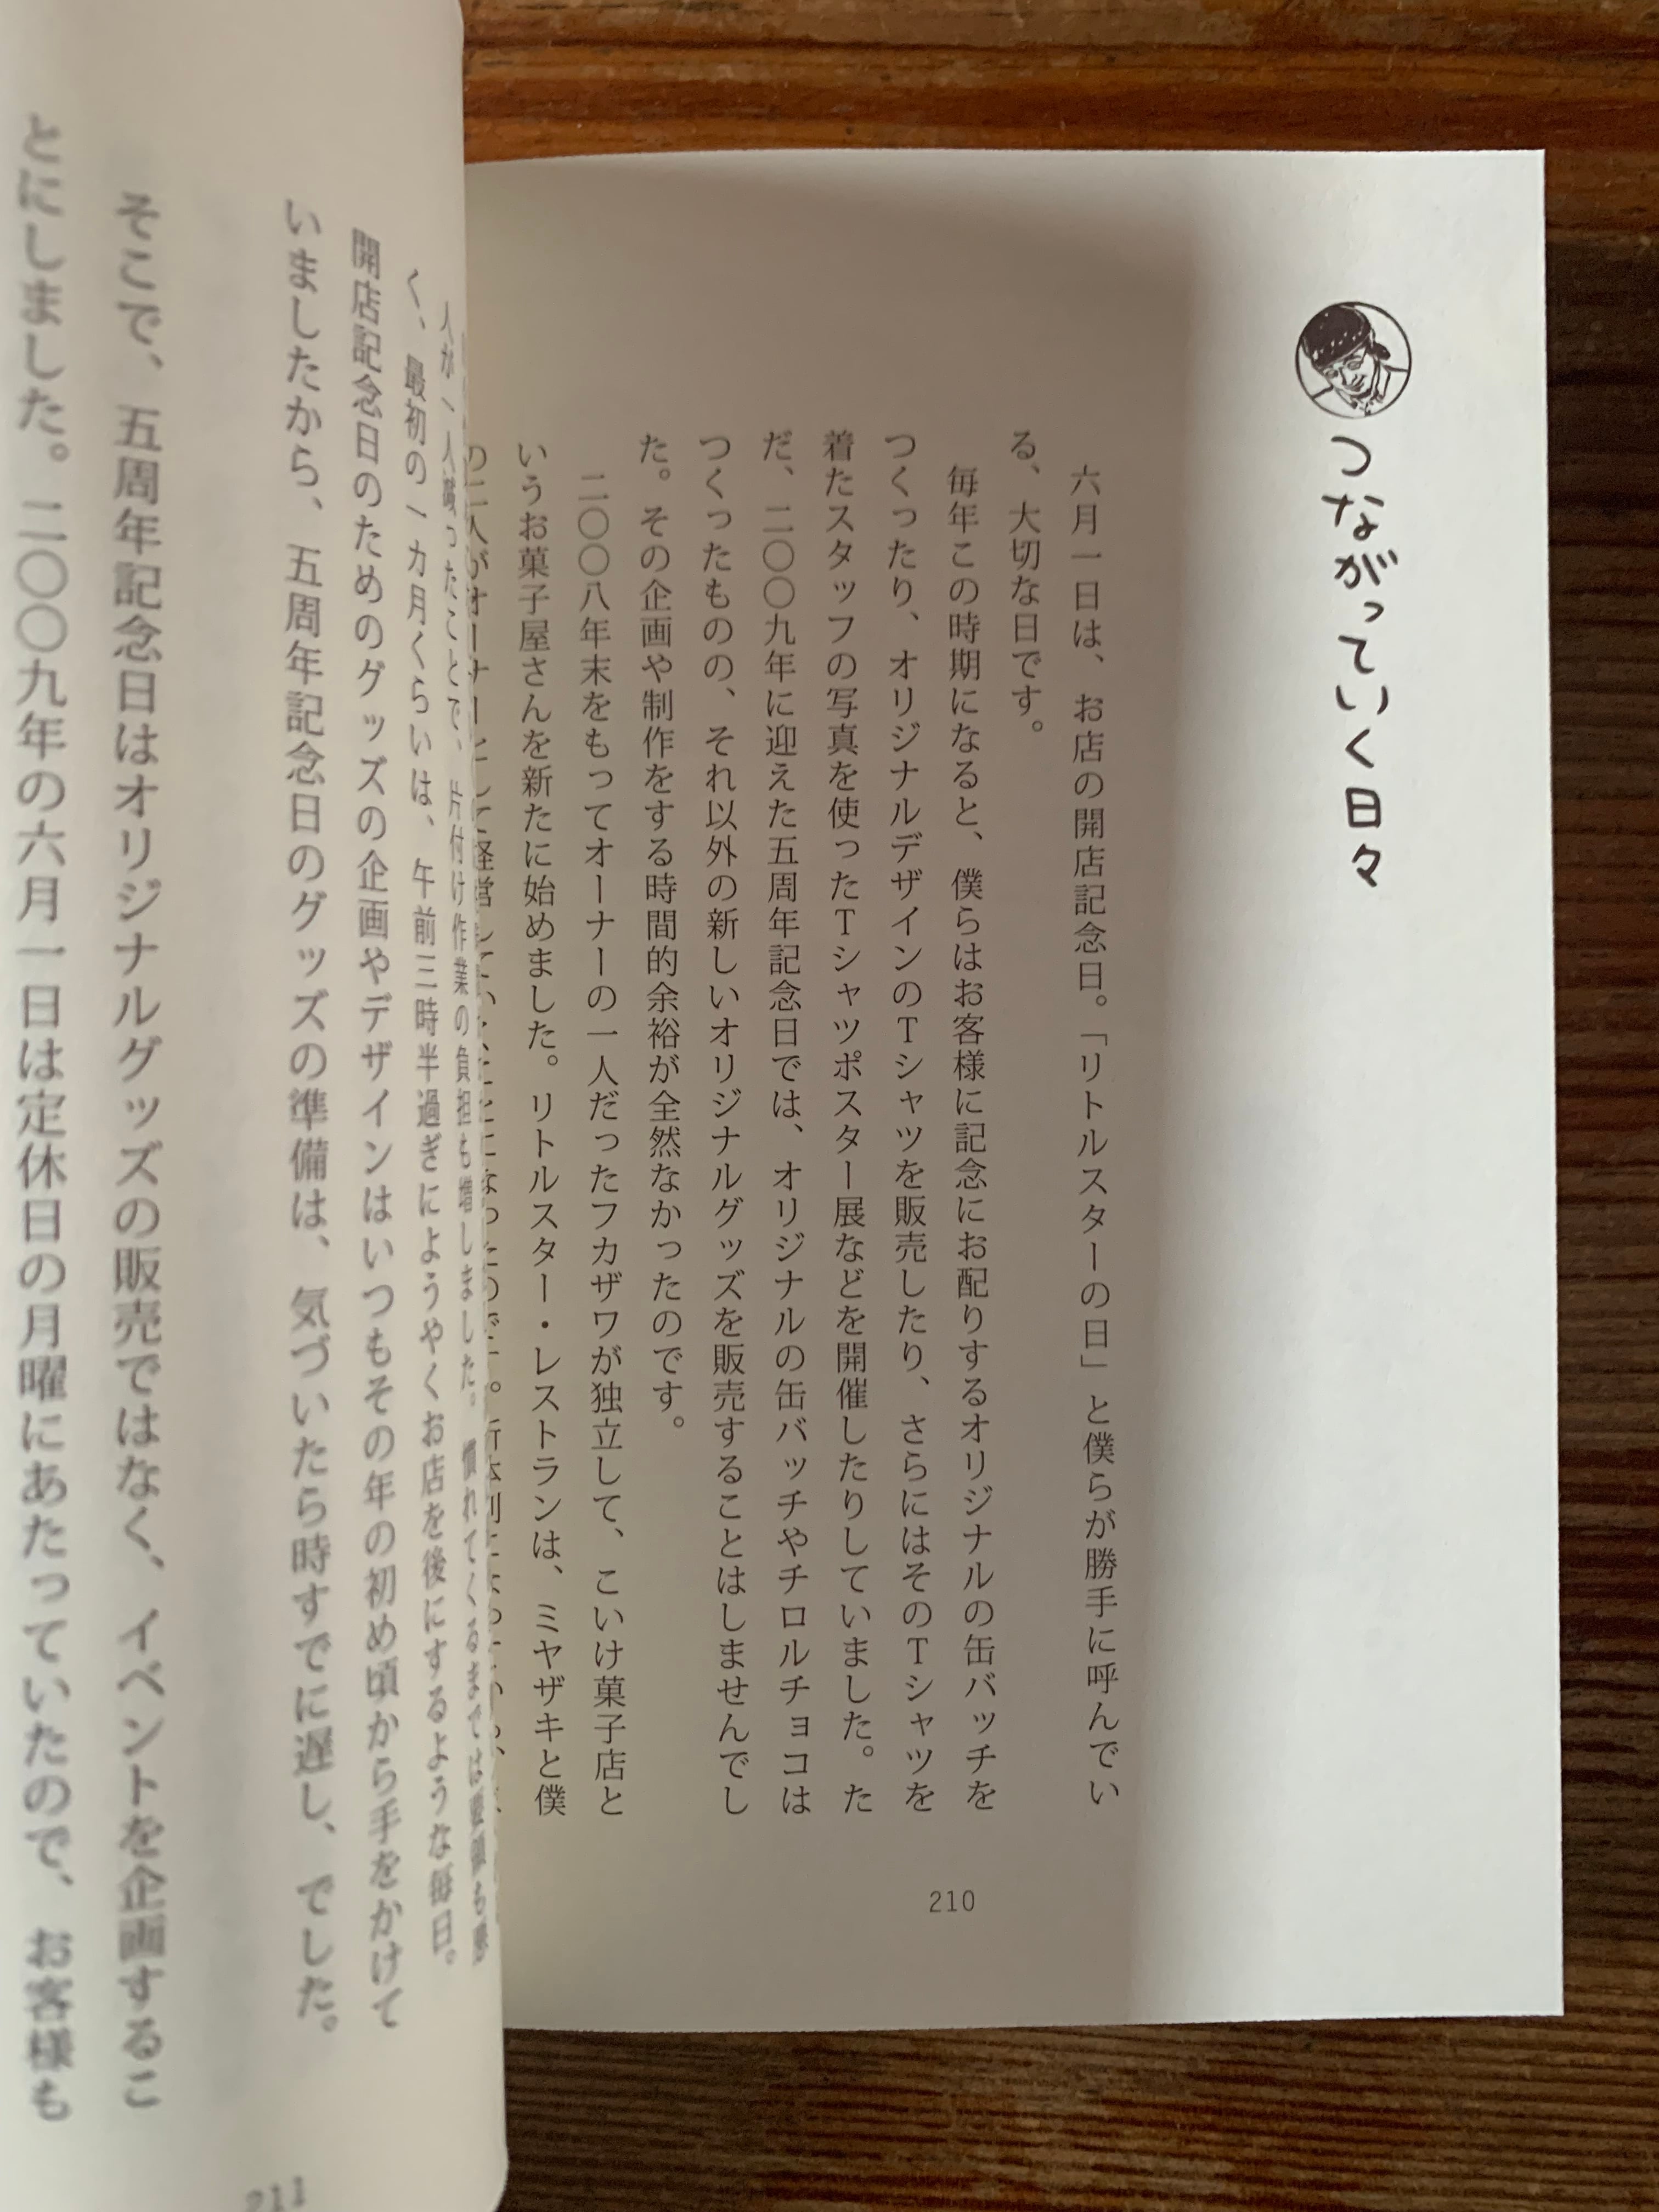 つながっていく日々
六月一日は、お店の開店記念日。「リトルスターの日」と僕らが勝手に呼んでい
る、大切な日です。
毎年この時期になると、僕らはお客様に記念にお配りするオリジナルの缶バッチを
つくったり、オリジナルデザインのTシャツを販売したり、さらにはそのTシャツを
着たスタッフの写真を使ったTシャツポスター展などを開催したりしていました。た
だ、二〇〇九年に迎えた五周年記念日では、オリジナルの缶バッチやチロルチョコは
つくったものの、それ以外の新しいオリジナルグッズを販売することはしませんでし
た。その企画や制作をする時間的余裕が全然なかったのです。
二〇〇八年末をもってオーナーの一人だったフカザワが独立して、こいけ菓子店と
いうお菓子屋さんを新たに始めました。リトルスター・レストランは、ミヤザキと僕
の二人がオーナーとして経営していくことになったのです。新体制になってから、
210
人が一人減ったことで、片付け作業の負担も増しました。慣れてくるまでは要領も悪
く、最初の一カ月くらいは、午前三時半過ぎにようやくお店を後にするような毎日。
開店記念日のためのグッズの企画やデザインはいつもその年の初め頃から手をかけて
いましたから、五周年記念日のグッズの準備は、気づいたら時すでに遅し、でした。
そこで、五周年記念日はオリジナルグッズの販売ではなく、イベントを企画するこ
とにしました。二〇〇九年の六月一日は定休日の月曜にあたっていたので、お客様も
211